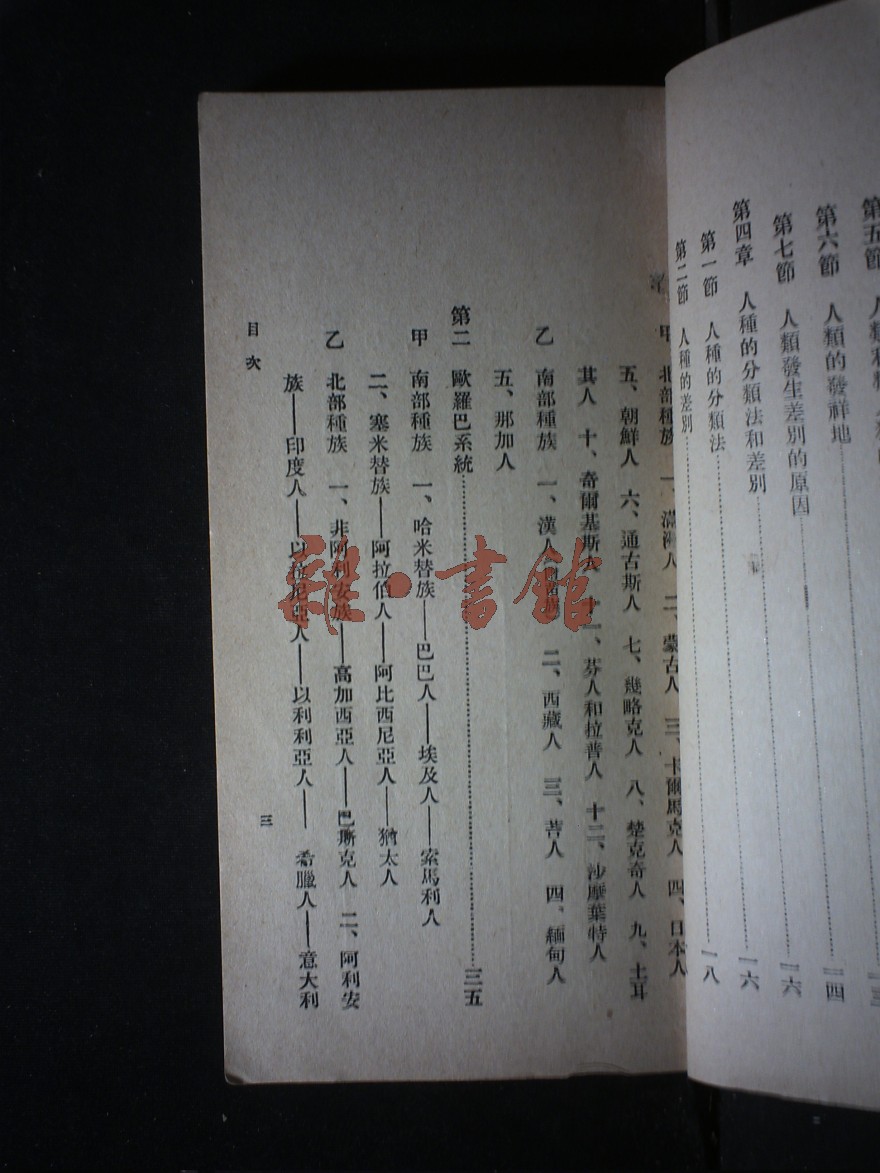 第五節
第六節　人類的發祥地……一四
第七節　人類發生差別的原因……一六
第四章　人種的分類法和差別……一六
第一節　人種的分類法……一八
第二節　人種的差別……
甲　北部種族　一、滿洲人　二、蒙古人　三、卡爾馬克人　四、日本人
五、朝鮮人　六、通古斯人　七、幾略克人　八、楚克奇人　九、土耳
其人　十、奇爾基斯人　十一、芬人和拉普人　十二、沙摩葉特人
乙　南部種族　一、漢人　二、西藏人　三、苦人　四、緬甸人
五、那加人
第二　歐羅巴系統……三五
甲　南部種族　一、哈米替族——巴巴人——埃及人——索馬利人
二、塞米替族——阿拉伯人——阿比西尼亞人——猶太人
乙　北部種族　一、非阿利安族——高加西亞人——巴斯克人　二、阿利安
族——印度人——以拉尼亞人——以利利亞人——希臘人——意大利
目次
三
雜·書館